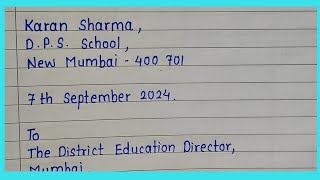 Karan Sharma,
D.P.S. School,
New Mumbai - 400 701
7th September 2024.
To
The District Education Director,
Mumbai